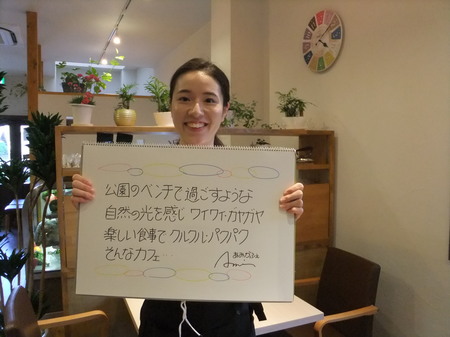 公園のベンチで過ごすような
自然の光を感じ ワイワイ・ガヤガヤ
楽しい食事で クルクル・パクパク
そんなカフェ…